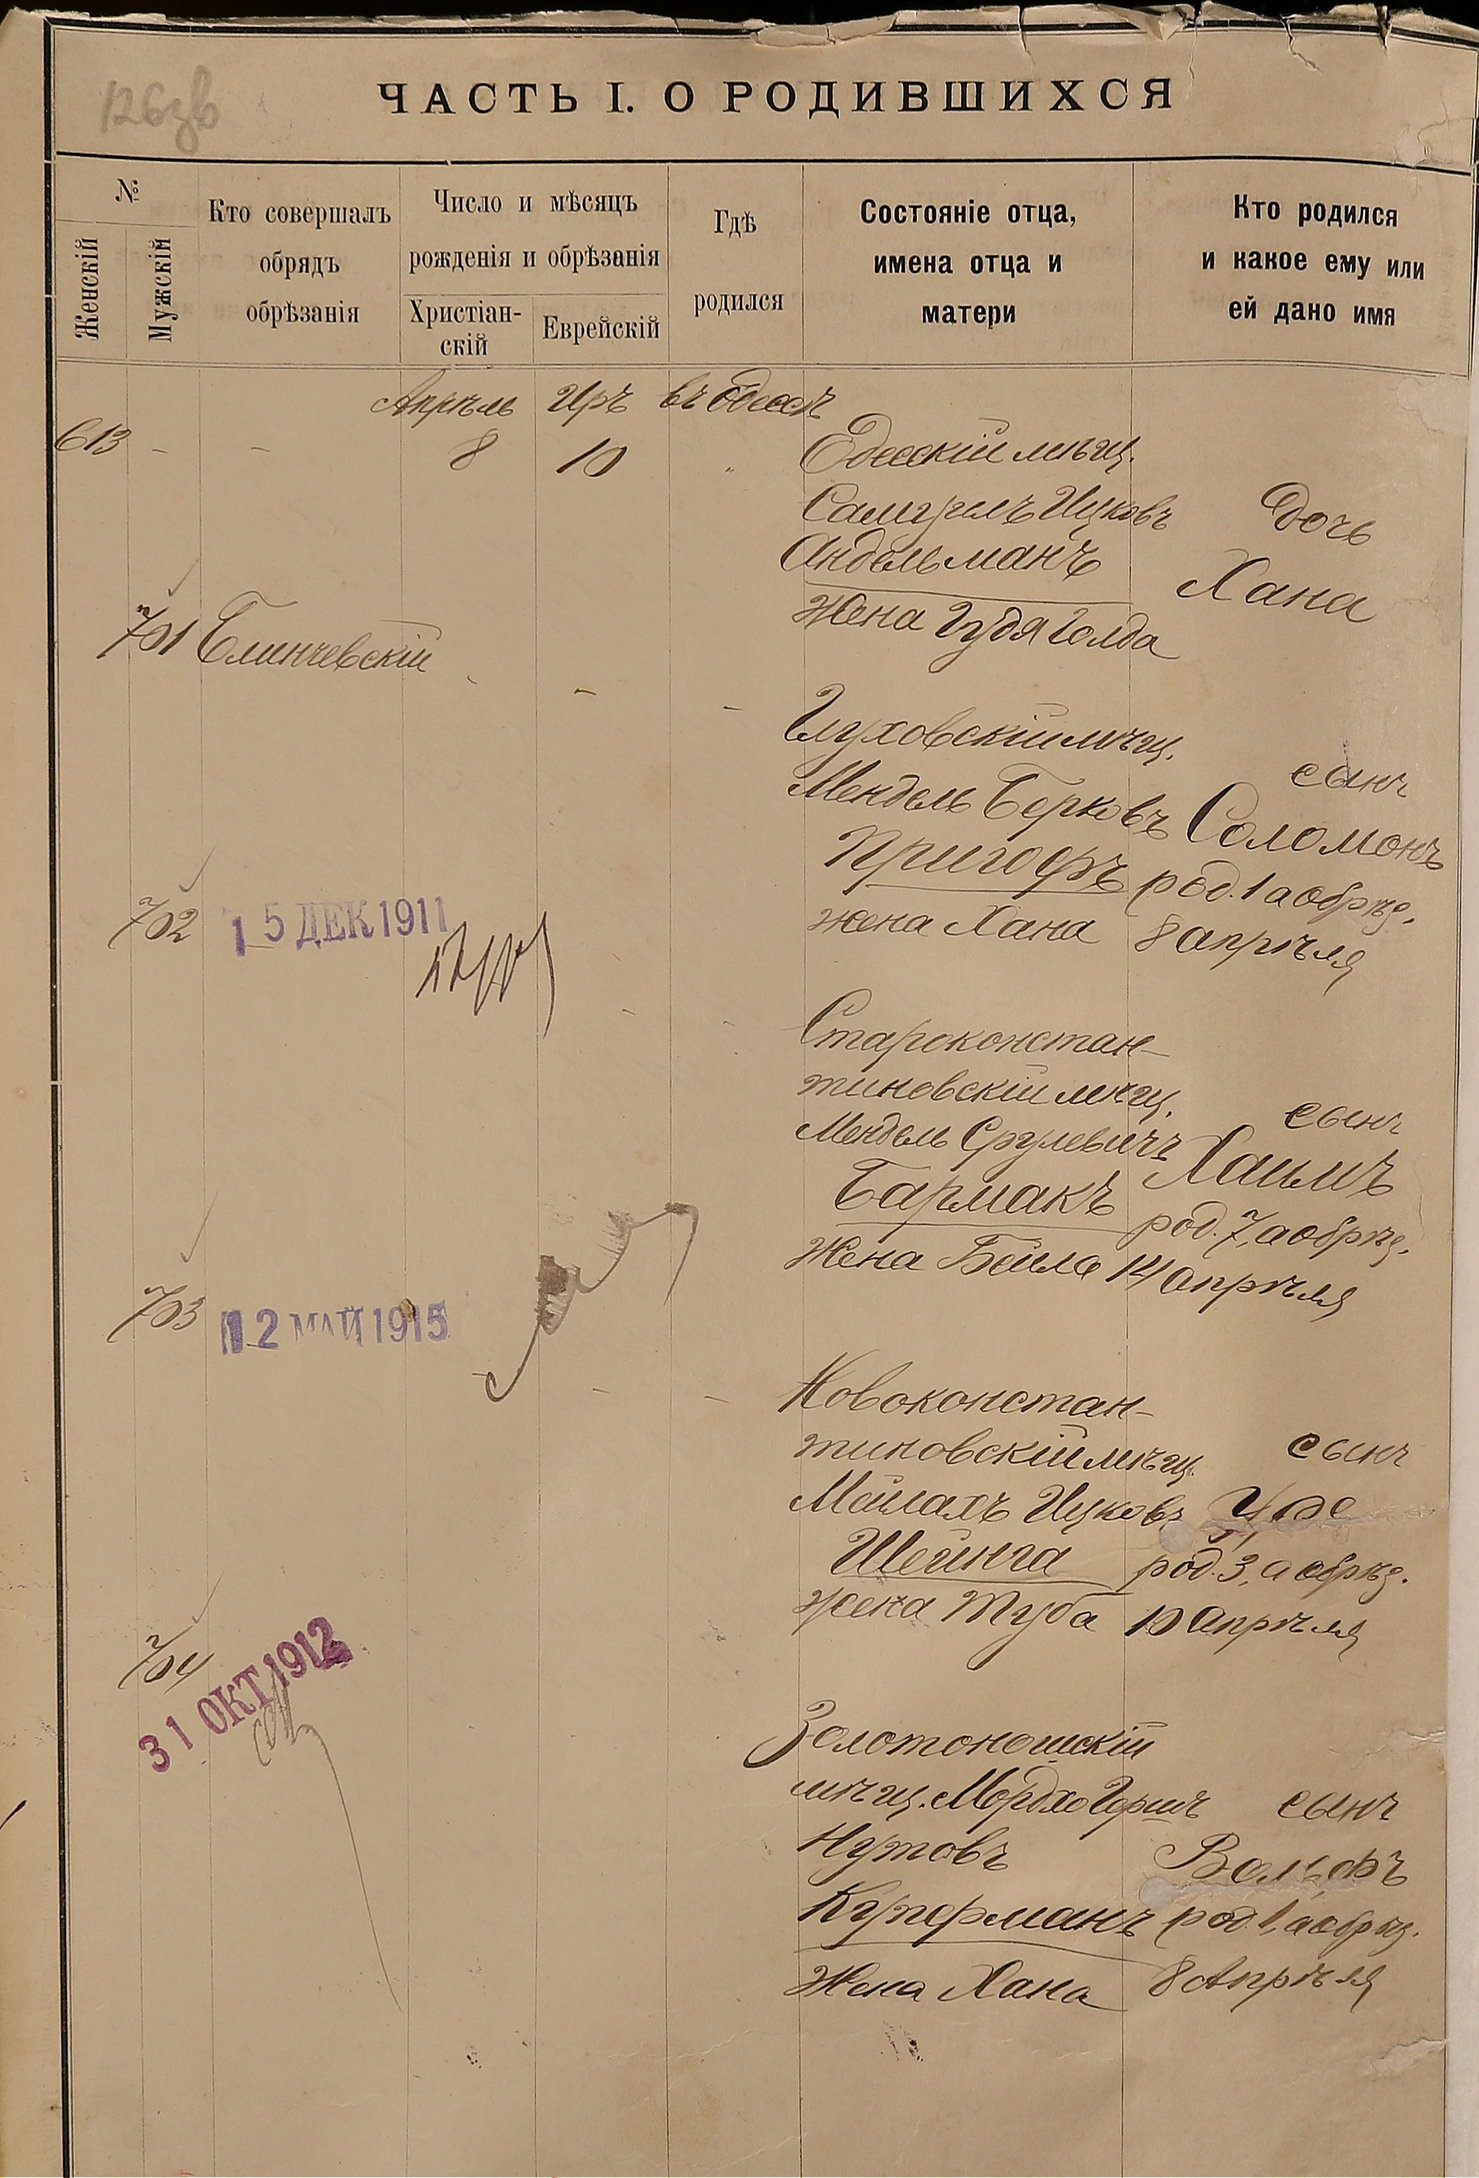 126зв
ЧАСТЬ I. О РОДИВШИХСЯ
№
Женскій
Мужскій
Кто совершалъ
обрядъ
обрѣзанія
Число и мѣсяцъ
рожденія и обрѣзанія
Христіан-
скій
Еврейскій
Гдѣ
родился
Состояніе отца,
имена отца и
матери
Кто родился
и какое ему или
ей дано имя
Апрѣль Иръ въ Одессѣ
613 - - 8 10 „ Одесскій мѣщ.
Самуилъ Ицковъ дочь
Андельманъ Хана
жена Гудя Голда
701 Блинчевскій
Глуховскій мѣщ. сынъ
Мендель Берковъ Соломонъ
Пригофъ род. 1 а обрѣз.
жена Хана 8 апрѣля
702 15 ДЕК 1911
Староконстан-
тиновскій мѣщ. сынъ
Мендель Срулевичъ Хаимъ
Бармакъ род. 7, а обрѣз.
жена Бейла 14 апрѣля
703 12 МАЙ 1915
Новоконстан-
тиновскій мѣщ. сынъ
Мейлахъ Ицковъ
Шейнга род. 3, а обрѣз.
жена Туба 10 апрѣля
704 31 ОКТ 1912
Золотоношскій
мѣщ. Мордхо Гершъ сынъ
Нутовъ Вольфъ
Куперманъ род. 1, а обрѣз.
жена Хана 8 Апрѣля